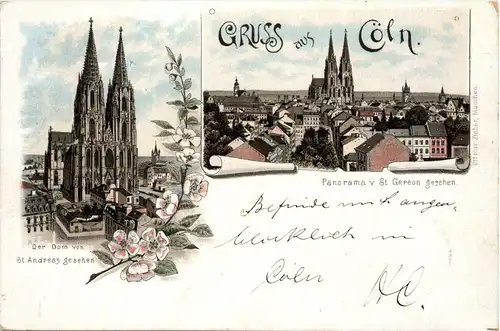 Gruss aus Cöln.
Panorama v St Gereon gesehen.
Der Dom von
St Andreas gesehen
Befinde mich augen-
blicklich in
Cöln
HC.